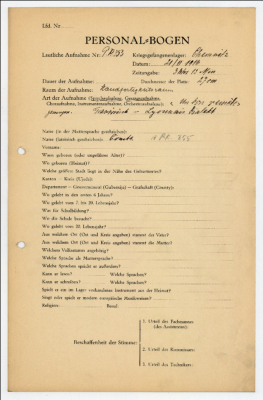 Lfd. Nr.
PERSONAL-BOGEN
Lautliche Aufnahme Nr.: Kriegsgefangenenlager:
Datum:
Zeitangabe:
Dauer der Aufnahme: Durchmesser der Platte: 27 cm
Raum der Aufnahme:
Art der Aufnahme (Sprechaufnahme, Gesangsaufnahme,
Choraufnahme, Instrumentenaufnahme, Orchesteraufnahme):
Name (in der Muttersprache geschrieben):
Name (lateinisch geschrieben):
Vorname:
Wann geboren (oder ungefähres Alter)?
Wo geboren (Heimat)?
Welche größere Stadt liegt in der Nähe des Geburtsortes?
Kanton — Kreis (Ujedz):
Departement — Gouvernement (Gubernija) — Grafschaft (County):
Wo gelebt in den ersten 6 Jahren?
Wo gelebt vom 7. bis 20. Lebensjahr?
Was für Schulbildung?
Wo die Schule besucht?
Wo gelebt vom 20. Lebensjahr?
Aus welchem Ort (Ort und Kreis angeben) stammt der Vater?
Aus welchem Ort (Ort und Kreis angeben) stammt die Mutter?
Welchem Volksstamm angehörig?
Welche Sprache als Muttersprache?
Welche Sprachen spricht er außerdem?
Kann er lesen? Welche Sprachen?
Kann er schreiben? Welche Sprachen?
Spielt er ein im Lager vorhandenes Instrument aus der Heimat?
Singt oder spielt er moderne europäische Musikweisen?
Religion: Beruf:
1. Urteil des Fachmannes
(des Assistenten):
Beschaffenheit der Stimme:
2. Urteil des Kommissars:
3. Urteil des Technikers: